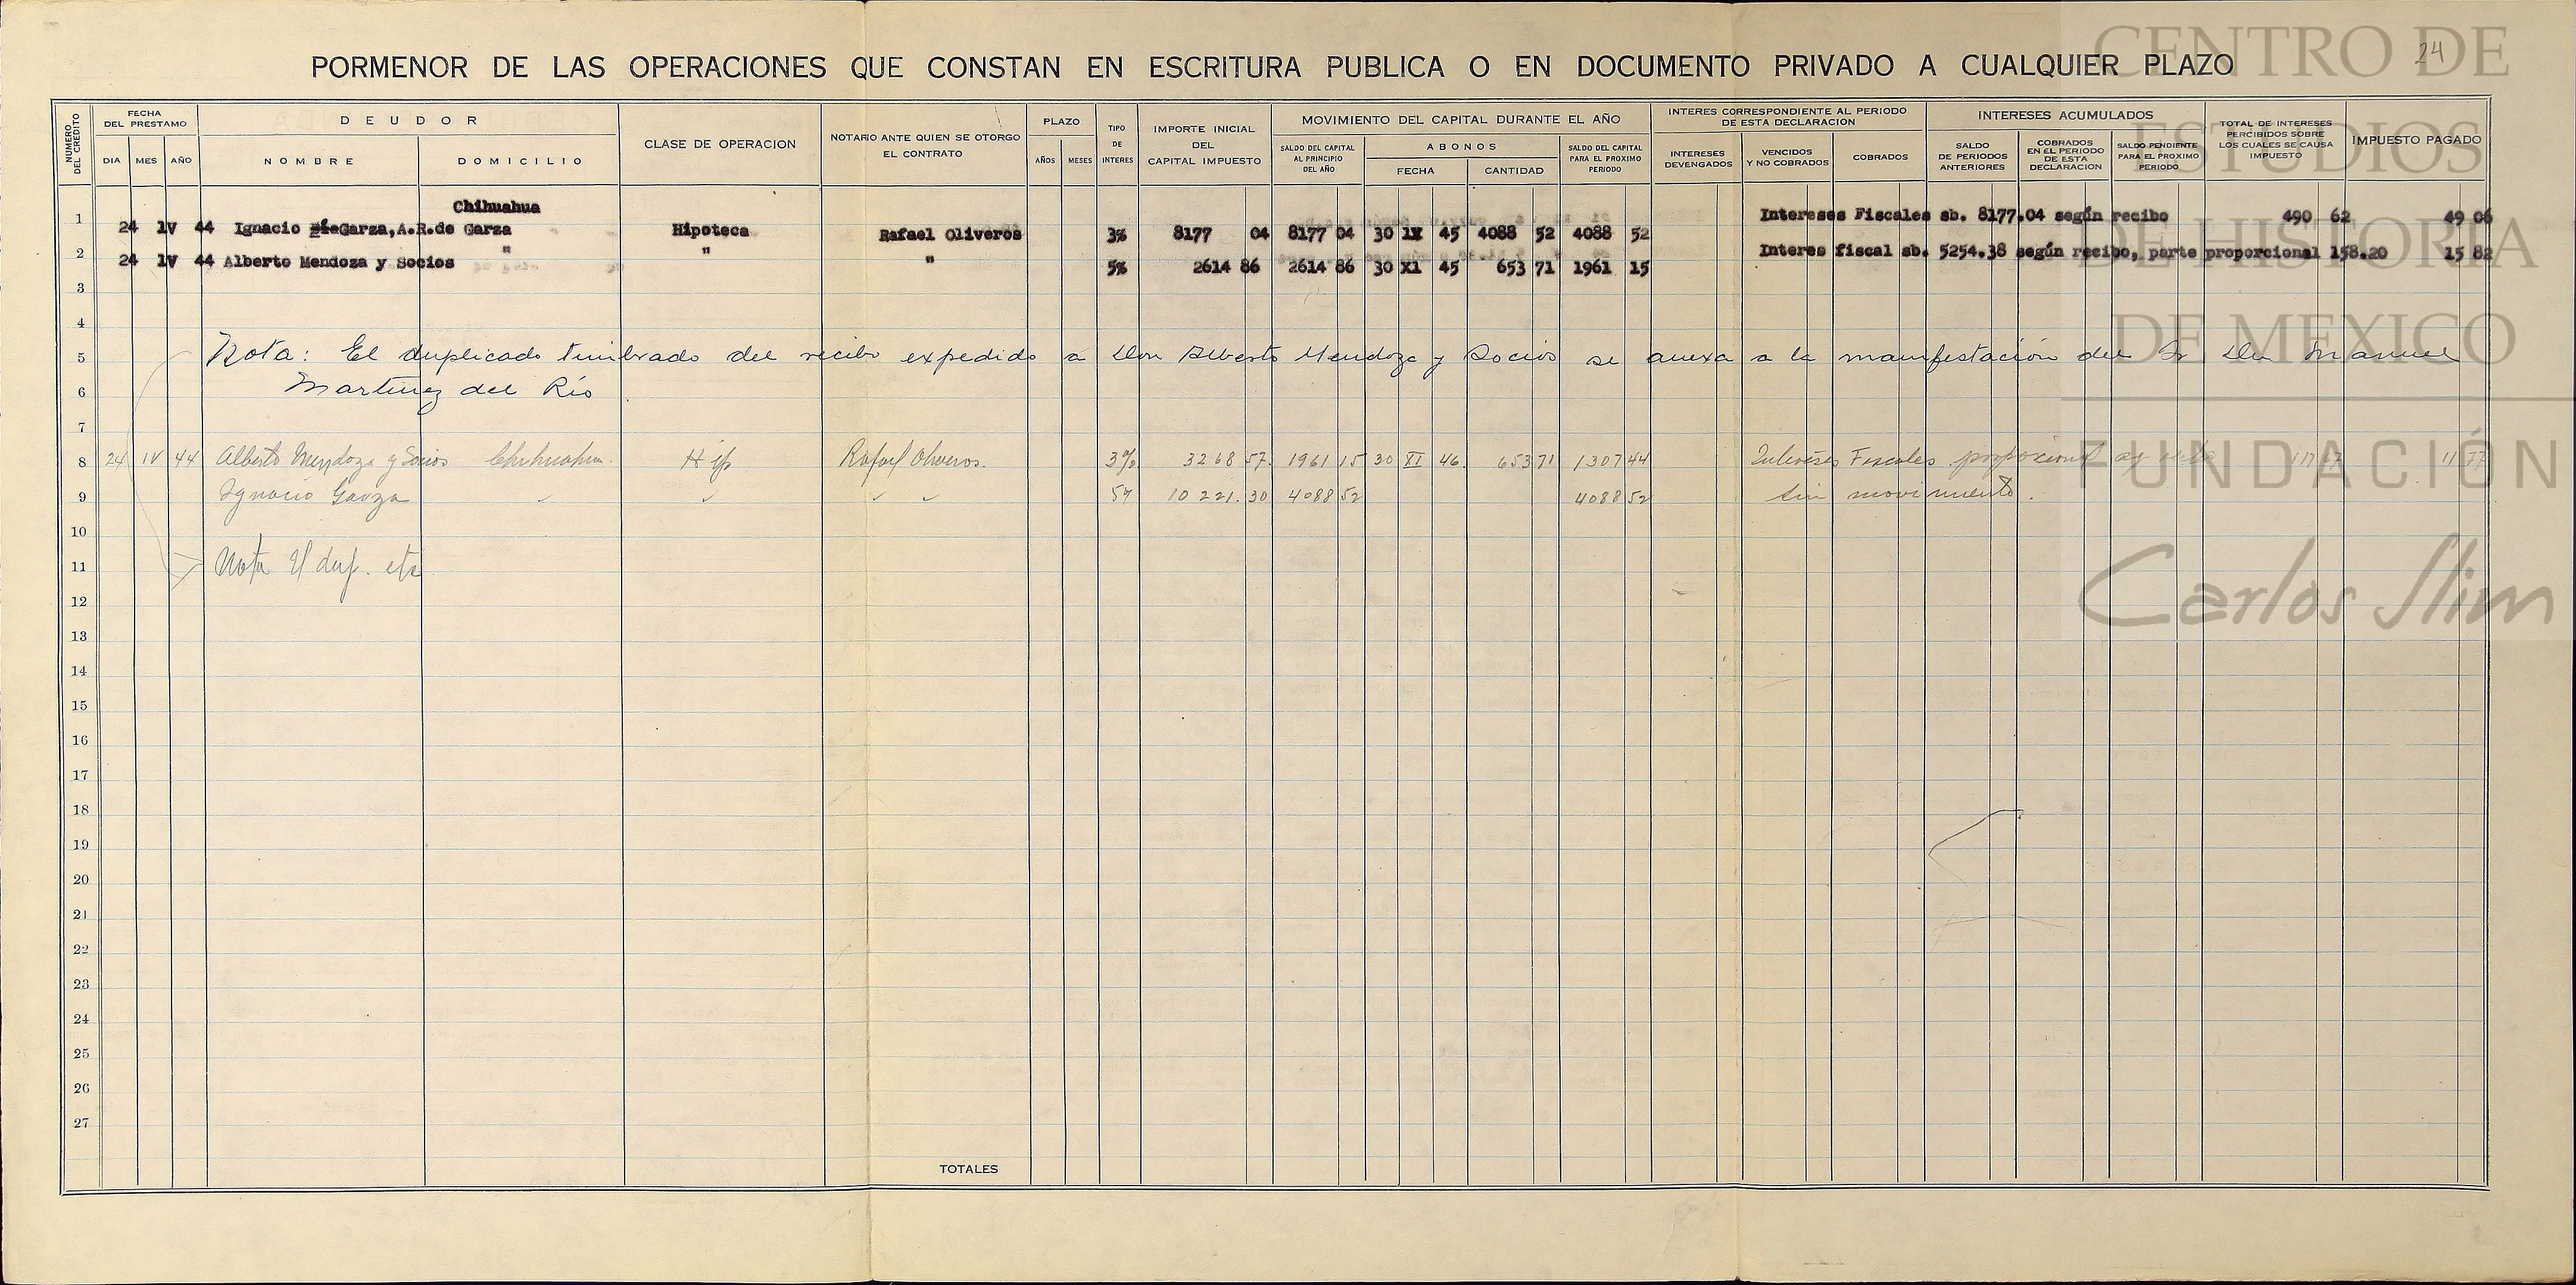 24
PORMENOR DE LAS OPERACIONES QUE CONSTAN EN ESCRITURA PUBLICA O EN DOCUMENTO PRIVADO A CUALQUIER PLAZO
NUMERO DEL CREDITO
FECHA DEL PRESTAMO
DIA MES AÑO
DEUDOR
NOMBRE DOMICILIO
CLASE DE OPERACION
NOTARIO ANTE QUIEN SE OTORGO EL CONTRATO
PLAZO
AÑOS MESES
TIPO DE INTERES
IMPORTE INICIAL DEL CAPITAL IMPUESTO
MOVIMIENTO DEL CAPITAL DURANTE EL AÑO
SALDO DEL CAPITAL AL PRINCIPIO DEL AÑO
ABONOS
FECHA CANTIDAD
SALDO DEL CAPITAL PARA EL PROXIMO PERIODO
INTERES CORRESPONDIENTE AL PERIODO DE ESTA DECLARACION
INTERESES DEVENGADOS
VENCIDOS Y NO COBRADOS
COBRADOS
INTERESES ACUMULADOS
SALDO DE PERIODOS ANTERIORES
COBRADOS EN EL PERIODO DE ESTA DECLARACION
SALDO PENDIENTE PARA EL PROXIMO PERIODO
TOTAL DE INTERESES PERCIBIDOS SOBRE LOS CUALES SE CAUSA IMPUESTO
IMPUESTO PAGADO
Chihuahua
1 24 lV 44 Ignacio Garza,A.R.de Garza Hipoteca Rafael Oliveros 3% 8177 04 8177 04 30 lX 45 4088 52 4088 52 Intereses Fiscales sb. 8177.04 según recibo 490 62 49 06
2 24 lV 44 Alberto Mendoza y Socios " " " 5% 2614 86 2614 86 30 Xl 45 653 71 1961 15 Interes fiscal sb. 5254.38 según recibo, parte proporcional 158.20 15 82
3
4
5 Nota: El duplicado timbrado del recibo expedido a Don Alberto Mendoza y Socios se anexa a la manifestación del Sr Dn Manuel
6 Martinez del Río
7
8 24 IV 44 Alberto Mendoza y Socios Chihuahua. Hip Rafael Oliveros. 3% 3268 57 1961 15 30 XI 46 653 71 1307 44 Intereses Fiscales proporcional 117 67 11 77
9 Ignacio Garza 10 221.30 4088 52 4088 52 Sin movimiento.
10
11 Nota El dup. etc
12
13
14
15
16
17
18
19
20
21
22
23
24
25
26
27
TOTALES
CENTRO DE
ESTUDIOS
DE HISTORIA
DE MEXICO
FUNDACIÓN
Carlos Slim